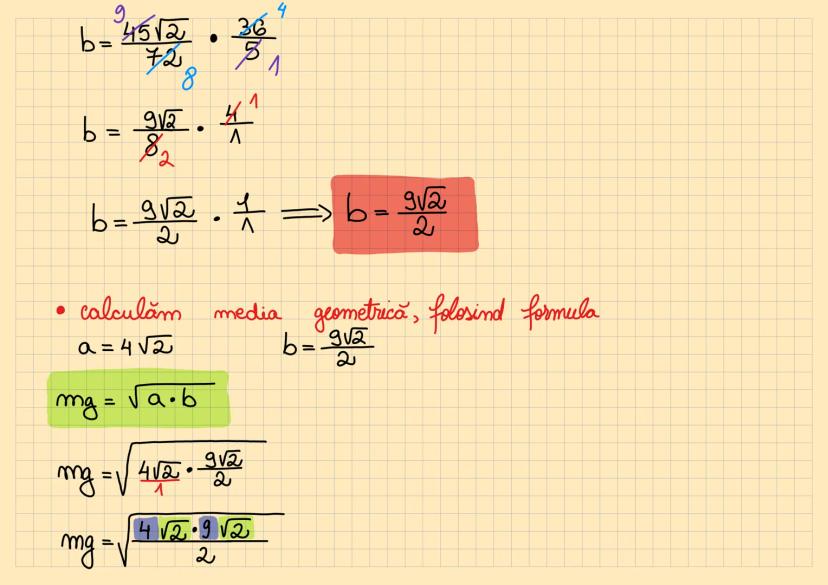 b = 45√2/72 · 36/5 9 8 4 1
b = 9√2/8 · 4/1 2 1
b = 9√2/2 · 1/1 ⟹ b = 9√2/2
• calculăm media geometrică, folosind formula
a = 4√2 b = 9√2/2
mg = √(a·b)
mg = √(4√2/1 · 9√2/2)
mg = √(4√2·9√2/2)